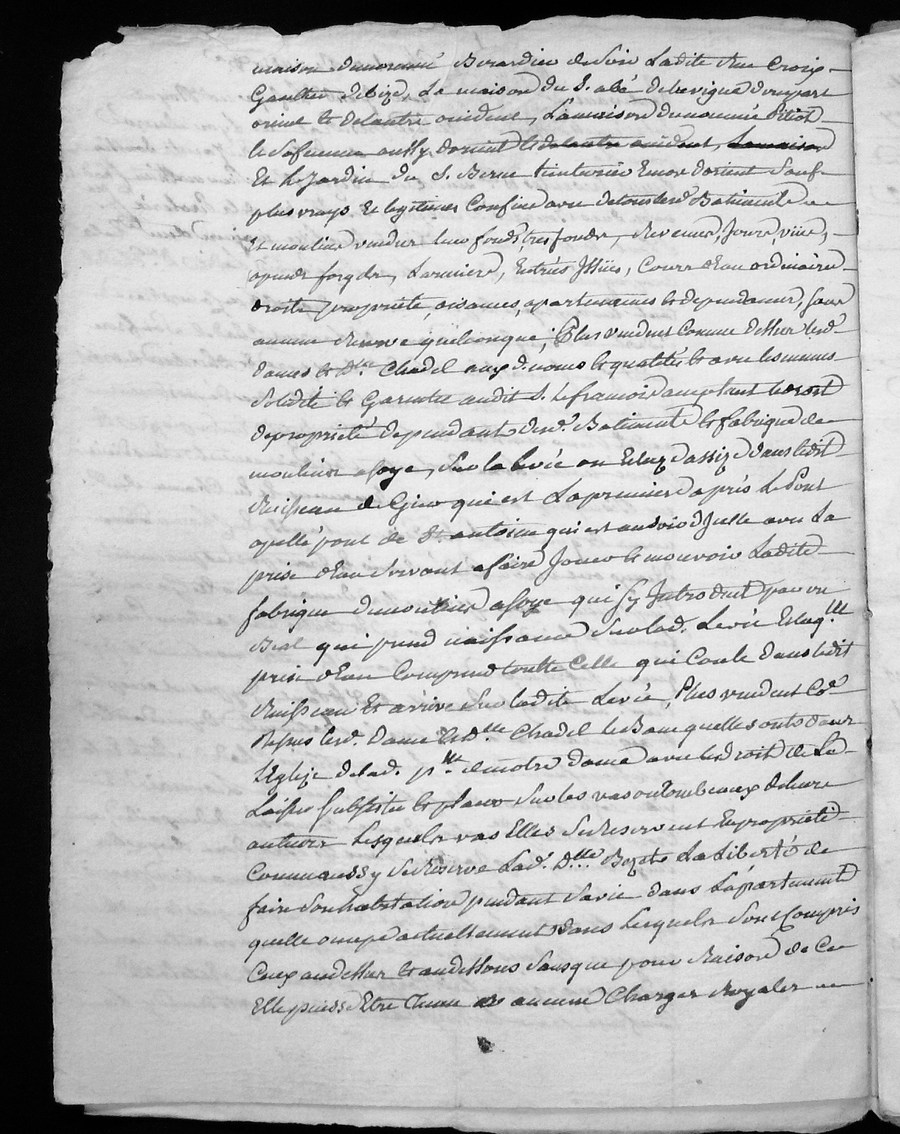 maison du nommé Berardier de soir Ladite Rue Croix
Gaultier debize, La maison du S. abé delavigne d'une part
orient et de l'autre occident, La maison du nommé Pitiot
et sa femme aussy dorient et de lautre occident, La maison
Et le Jardin du S. Berne teinturier Encor dorient Sauf
plus vrays Et legitimes Confins avec detous lesd. Batiments
et moulins vendus leurs fonds tres fonds, Revenus, Jours, vues,
Larmiers, Entrées Issües, Cours d'eau ordinaire
droits proprieté, aisances, apartenances et dependances, sans
aucune Reserve quelconque; Plus vendent Comme dessus lesd.
dames et Dlle Chadel aux d. noms et qualités et avec les mmes
Solidité et Garentie audit S. Lefrancois acceptant le droit
de proprieté dependant desd. Batiments et fabrique de
moulins a soye, Sur la levée ou Ecluze assize dans ledit
Ruisseau de Gier qui est La premiere après Le Pont
apellé pont de St antoine qui est au dvoir d'Icelle avec La
prise d'eau Servant a faire Jouer et mouvoir Ladite
fabrique de moulins a soye qui sy Introduit par un
Beal qui prend naissance Sur lad. Levée Et laq.lle
prise d'eau Comprend toutte Celle qui Coule dans ledit
Ruisseau Et arrive Sur ladite Levée, Plus vendent Co.e
dessus lesd. Dames et Dlle Chadel le Banc quelles ont dans
L'Eglize de lad. p.sse de notre dame avec le Droit de Le
Laisser Subsister et placer Sur les vas ou tombeaux de leurs
autheurs Lesquels vas Elles Se Reservent En proprieté
Comme aussy Se Reserve Lad. Dlle La Liberté de
faire Son habitation pendant Sa vie dans L'apartement
quelle occupe actuellement dans Lesquels Sont Compris
Ceux au dessus et au dessous Sans que pour Raison de Ce
Elle puisse Etre Tenue a aucunes Charges Royales